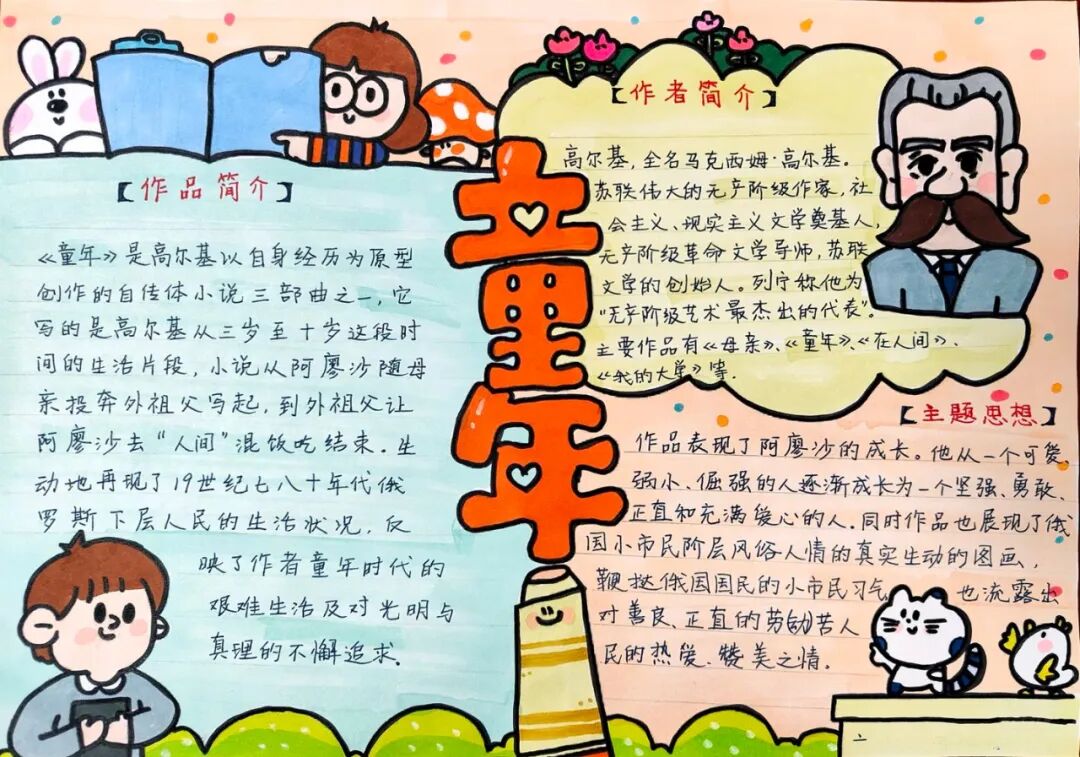 【作品简介】
《童年》是高尔基以自身经历为原型
创作的自传体小说三部曲之一，它
写的是高尔基从三岁至十岁这段时
间的生活片段，小说从阿廖沙随母
亲投奔外祖父写起，到外祖父让
阿廖沙去“人间”混饭吃结束。生
动地再现了19世纪七八十年代俄
罗斯下层人民的生活状况，反
映了作者童年时代的
艰难生活及对光明与
真理的不懈追求。
童年
【作者简介】
高尔基，全名马克西姆·高尔基。
苏联伟大的无产阶级作家，社
会主义、现实主义文学奠基人，
无产阶级革命文学导师，苏联
文学的创始人。列宁称他为
“无产阶级艺术最杰出的代表”。
主要作品有《母亲》、《童年》、《在人间》、
《我的大学》等.
【主题思想】
作品表现了阿廖沙的成长。他从一个可爱、
弱小、倔强的人逐渐成长为一个坚强、勇敢、
正直和充满爱心的人。同时作品也展现了俄
国小市民阶层风俗人情的真实生动的图画，
鞭挞俄国国民的小市民习气 也流露出
对善良、正直的劳动苦人
民的热爱、赞美之情.